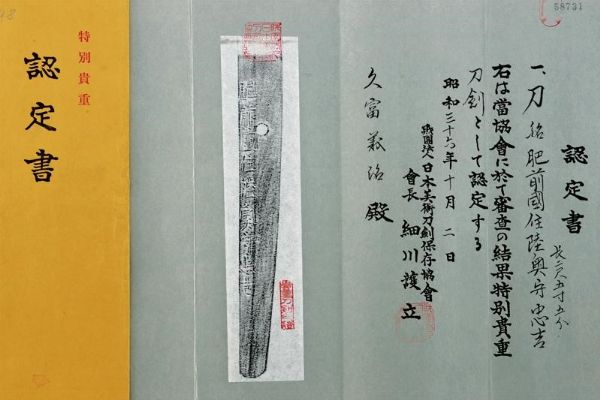 58731
認定書
長二尺五寸五分
一、刀 銘 肥前國住陸奥守忠吉
右は當協會に於て審査の結果特別貴重
刀剣として認定する
昭和三十六年十月二日
財團法人日本美術刀剣保存協會
會長 細川護立
久富 殿
特別貴重
認定書